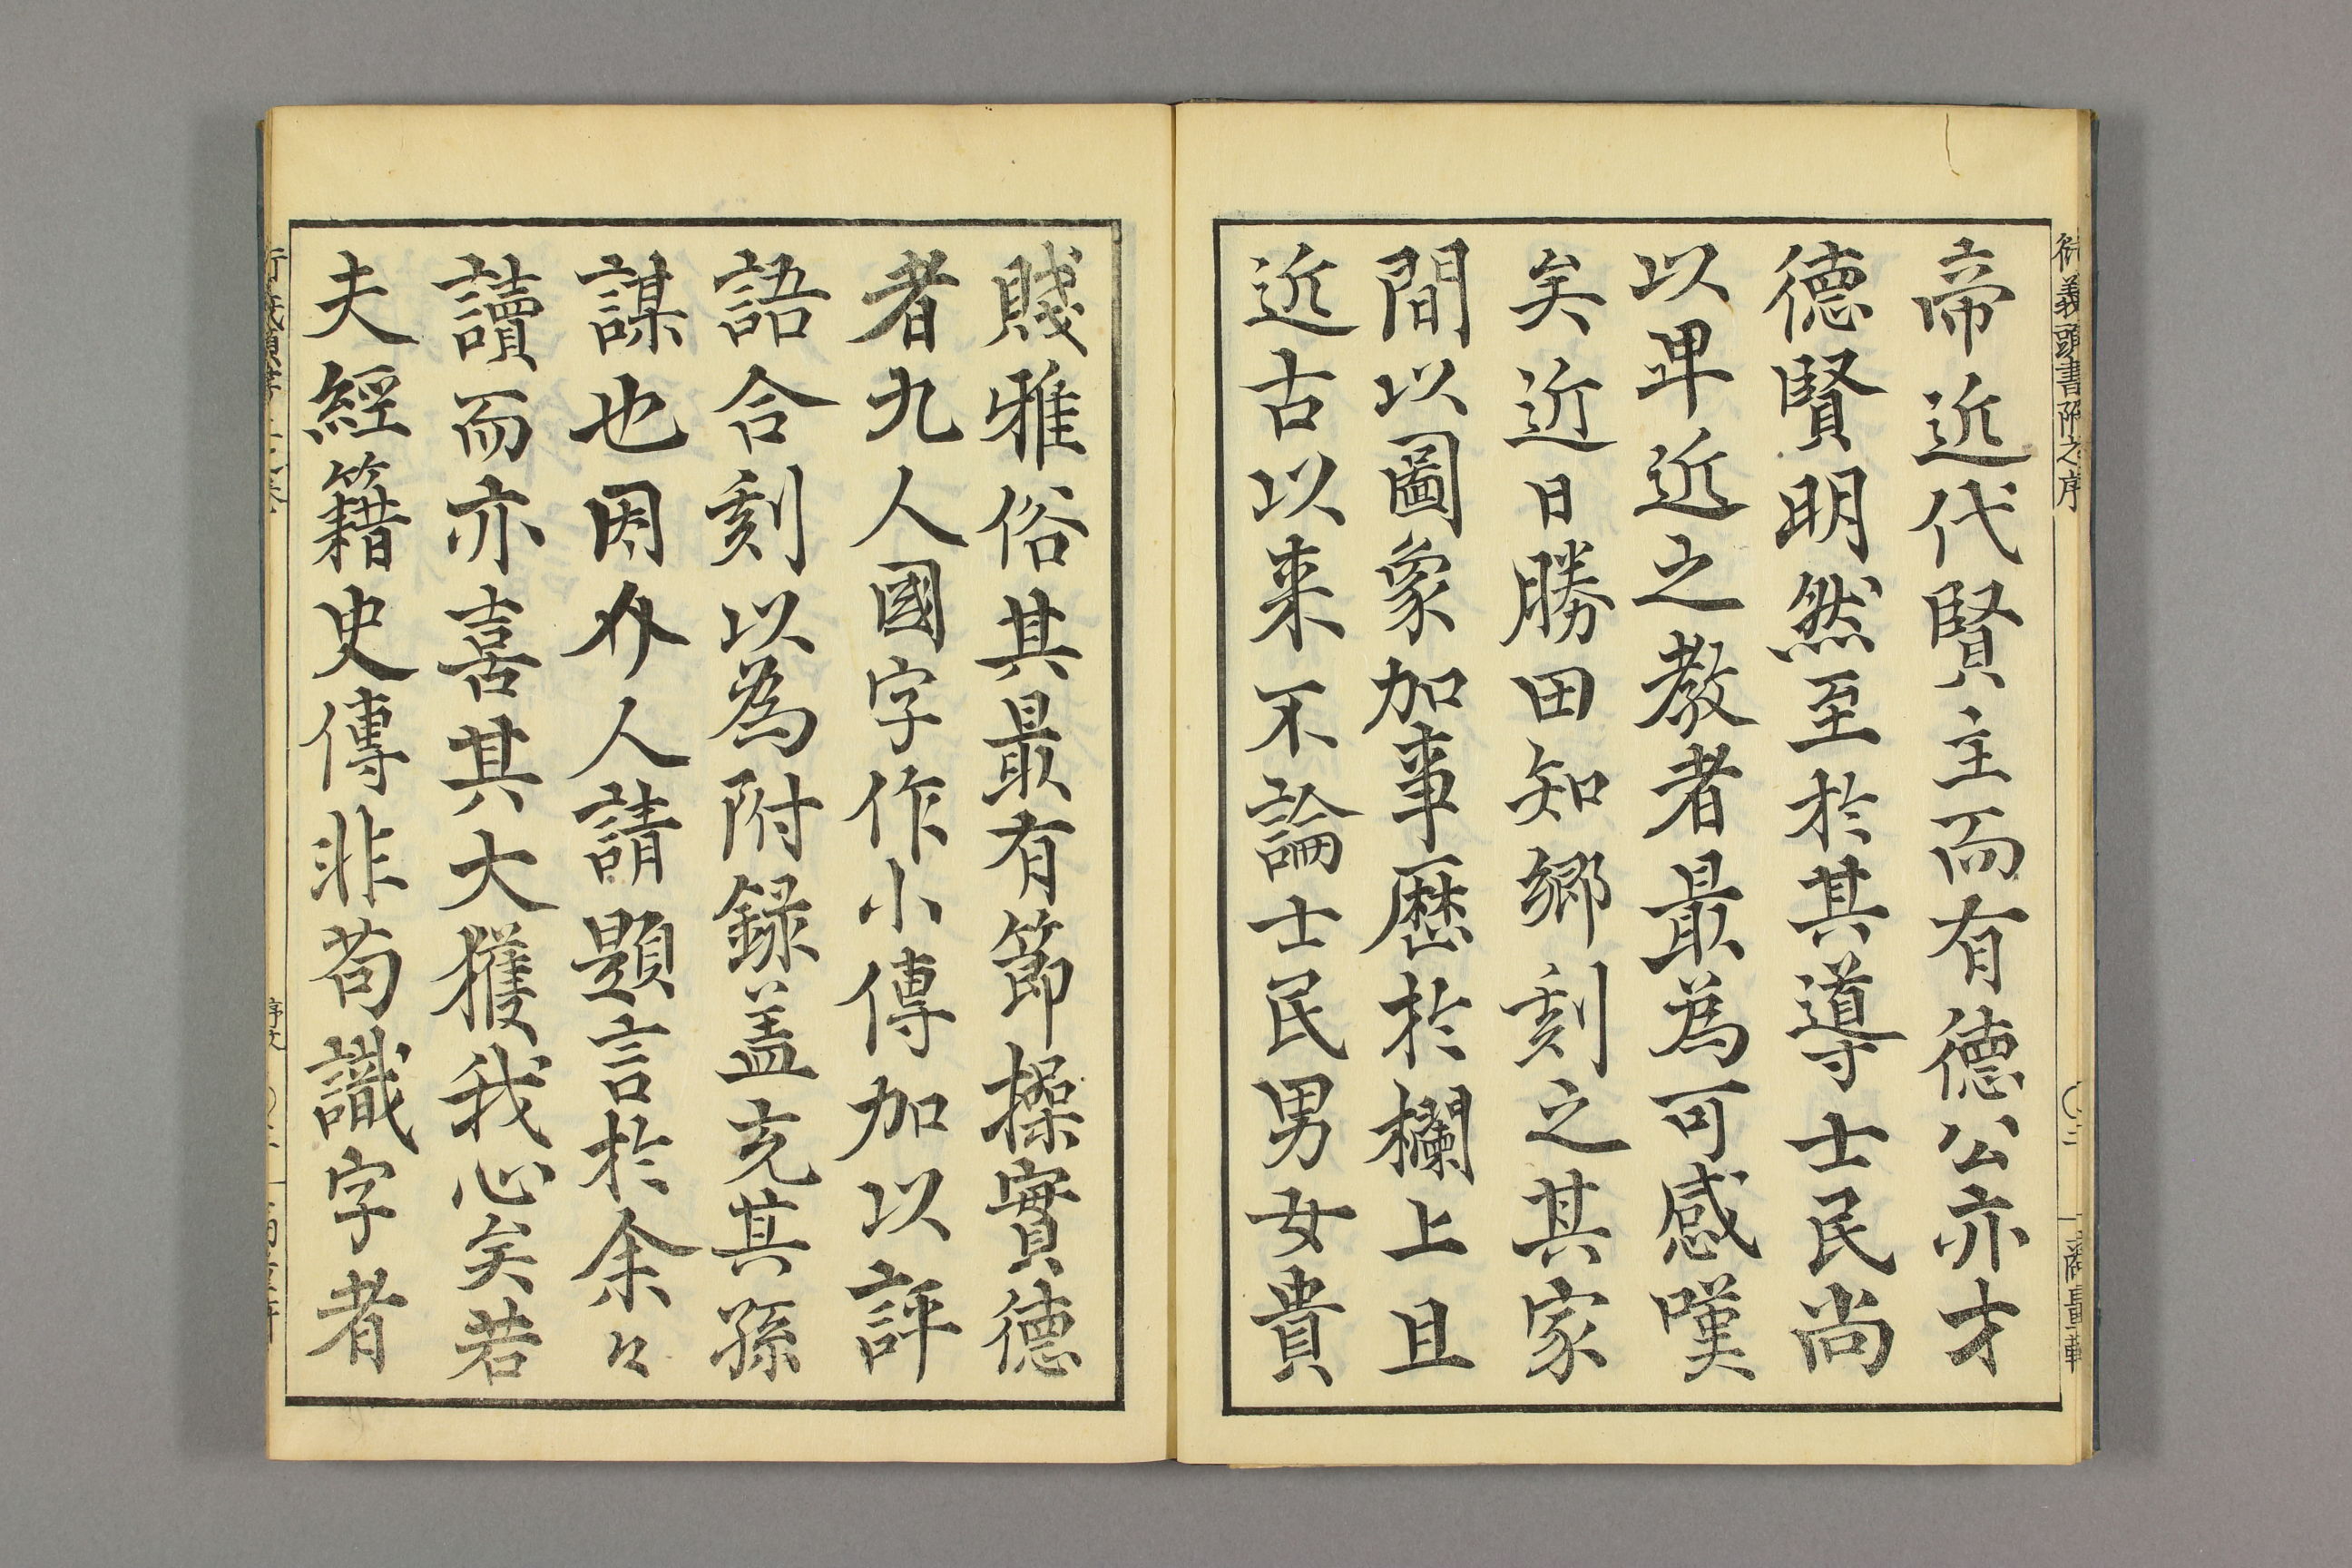 衍義頭書附之序
帝近代賢主而有德公亦才
德賢明然至於其導士民尚
以卑近之教者最為可感嘆
矣近日勝田知郷刻之其家
間以圖象加事歴於欄上且
近古以来不論士民男女貴
賤雅俗其最有節操實德
者九人國字作小傳加以評
語合刻以為附録盖充其孫
謀也因介人請題言於余々
讀而亦喜其大獲我心矣若
夫經籍史傳非苟識字者